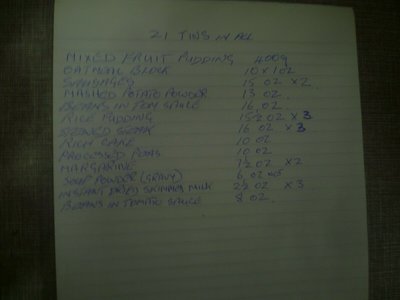 21 TINS IN ALL
MIXED FRUIT PUDDING 400g
OATMEAL BLOCK 10 x 1 OZ
SAUSAGES 15 OZ x 2
MASHED POTATO POWDER 13 OZ
BEANS IN TOM SAUCE 16 OZ
RICE PUDDING 15½ OZ x 3
STEWED STEAK 16 OZ x 3
RICH CAKE 10 OZ
PROCESSED PEAS 10 OZ
MARGARINE 7½ OZ x 2
SOUP POWDER (GRAVY) 6 OZ
INSTANT DRIED SKIMMED MILK 2½ OZ x 3
BEANS IN TOMATO SAUCE 8 OZ